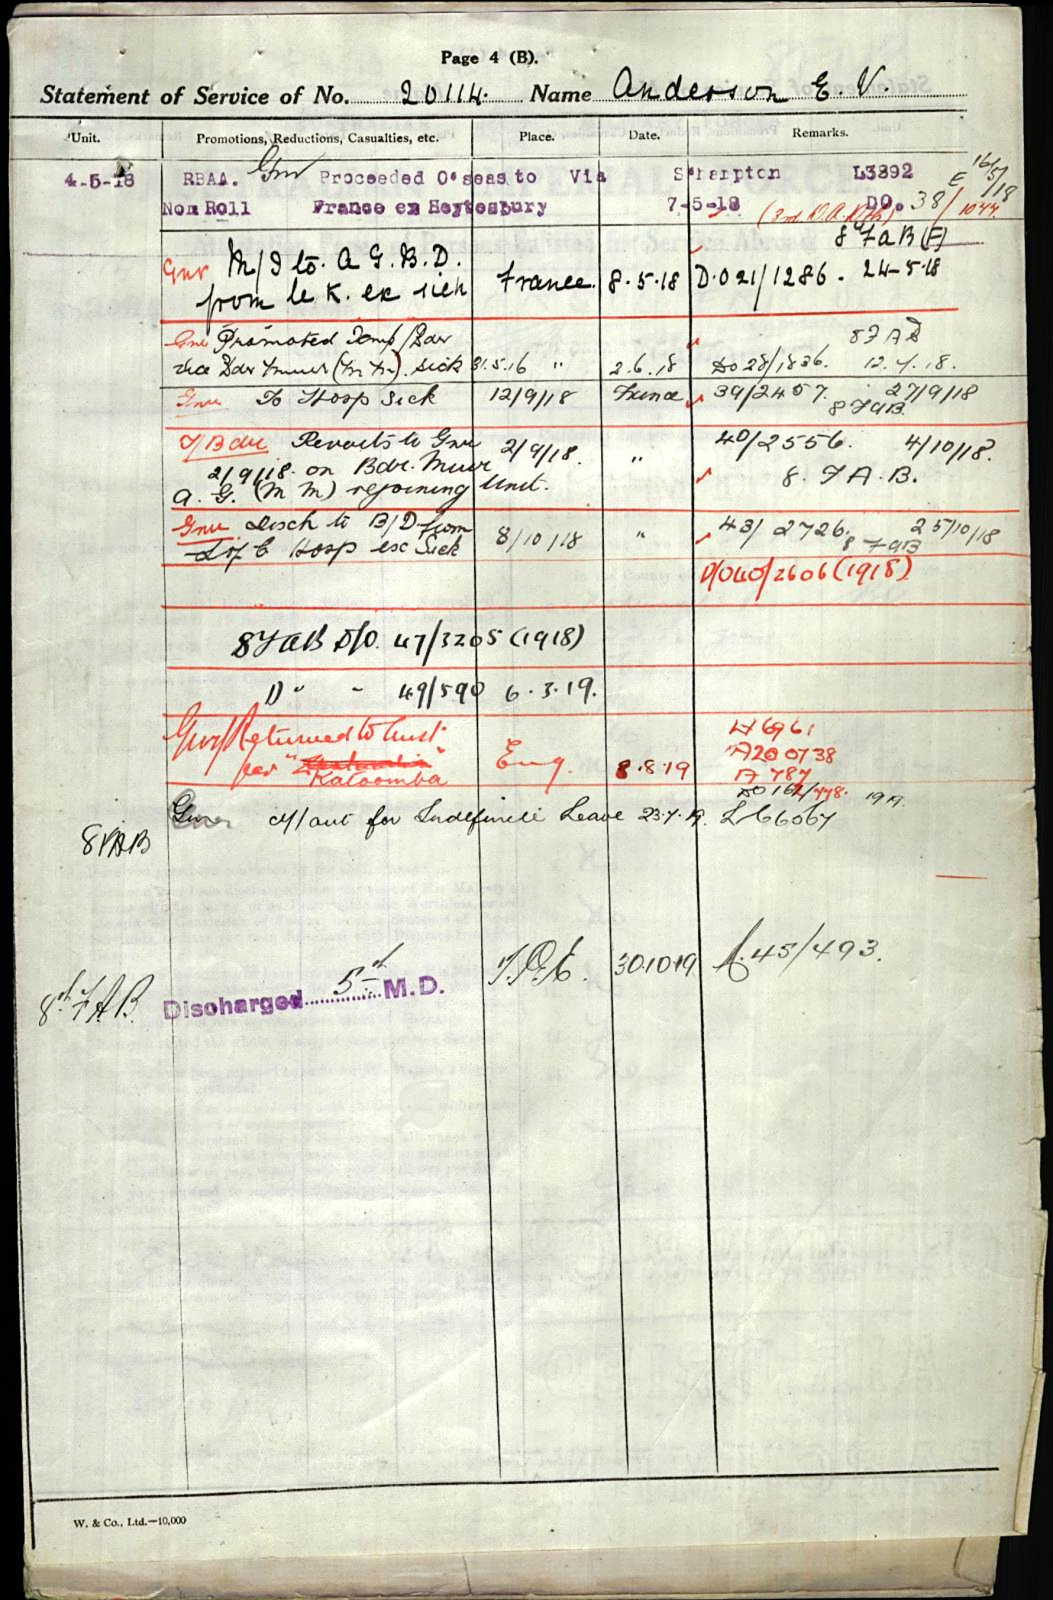 Page 4 (B).
Statement of Service of No. 20114. Name Anderson E. V.
Unit. Promotions, Reductions, Casualties, etc. Place. Date. Remarks.
4-5-18 RBAA. Gnr Proceeded O'seas to Via S'hampton L3892 E 16/5/18
Nom Roll France ex Heytesbury 7-5-18 DO. 38/1044
8 FAB (F)
Gnr M/I to A G. B. D. France. 8.5.18 D.O 21/1286. 24-5-18
from U. K. ex sick
Gnr Promoted Temp/Bdr 8 F A B
vice Bdr Muir (M.M.) sick 31.5.16 " 2.6.18 DO 28/1836. 12.7.18.
Gnr To Hosp Sick 12/9/18 France 39/2457. 27/9/18
8 FAB
T/Bdr Reverts to Gnr 2/9/18. " 40/2556. 4/10/18.
2/9/18. on Bdr. Muir 8. F A. B.
A. G. (M M) rejoining Unit.
Gnr Disch to B/D from 8/10/18 " 43/2726. 25/10/18
Hosp ex Sick 8 FAB
D/O40/2606 (1918)
8FAB D/O. 47/3205 (1918)
D " - 49/590 6.3.19.
Gnr Returned to Aust.
per "Katoomba" Eng. 8.8.19
A200738
A 787
Gnr for Indefinite Leave 23.7.19. L66067
8FAB
8th F A B. Discharged 5th M.D. T.P.E. 30.10.19 A.45/493.
W. & Co., Ltd.—10,000